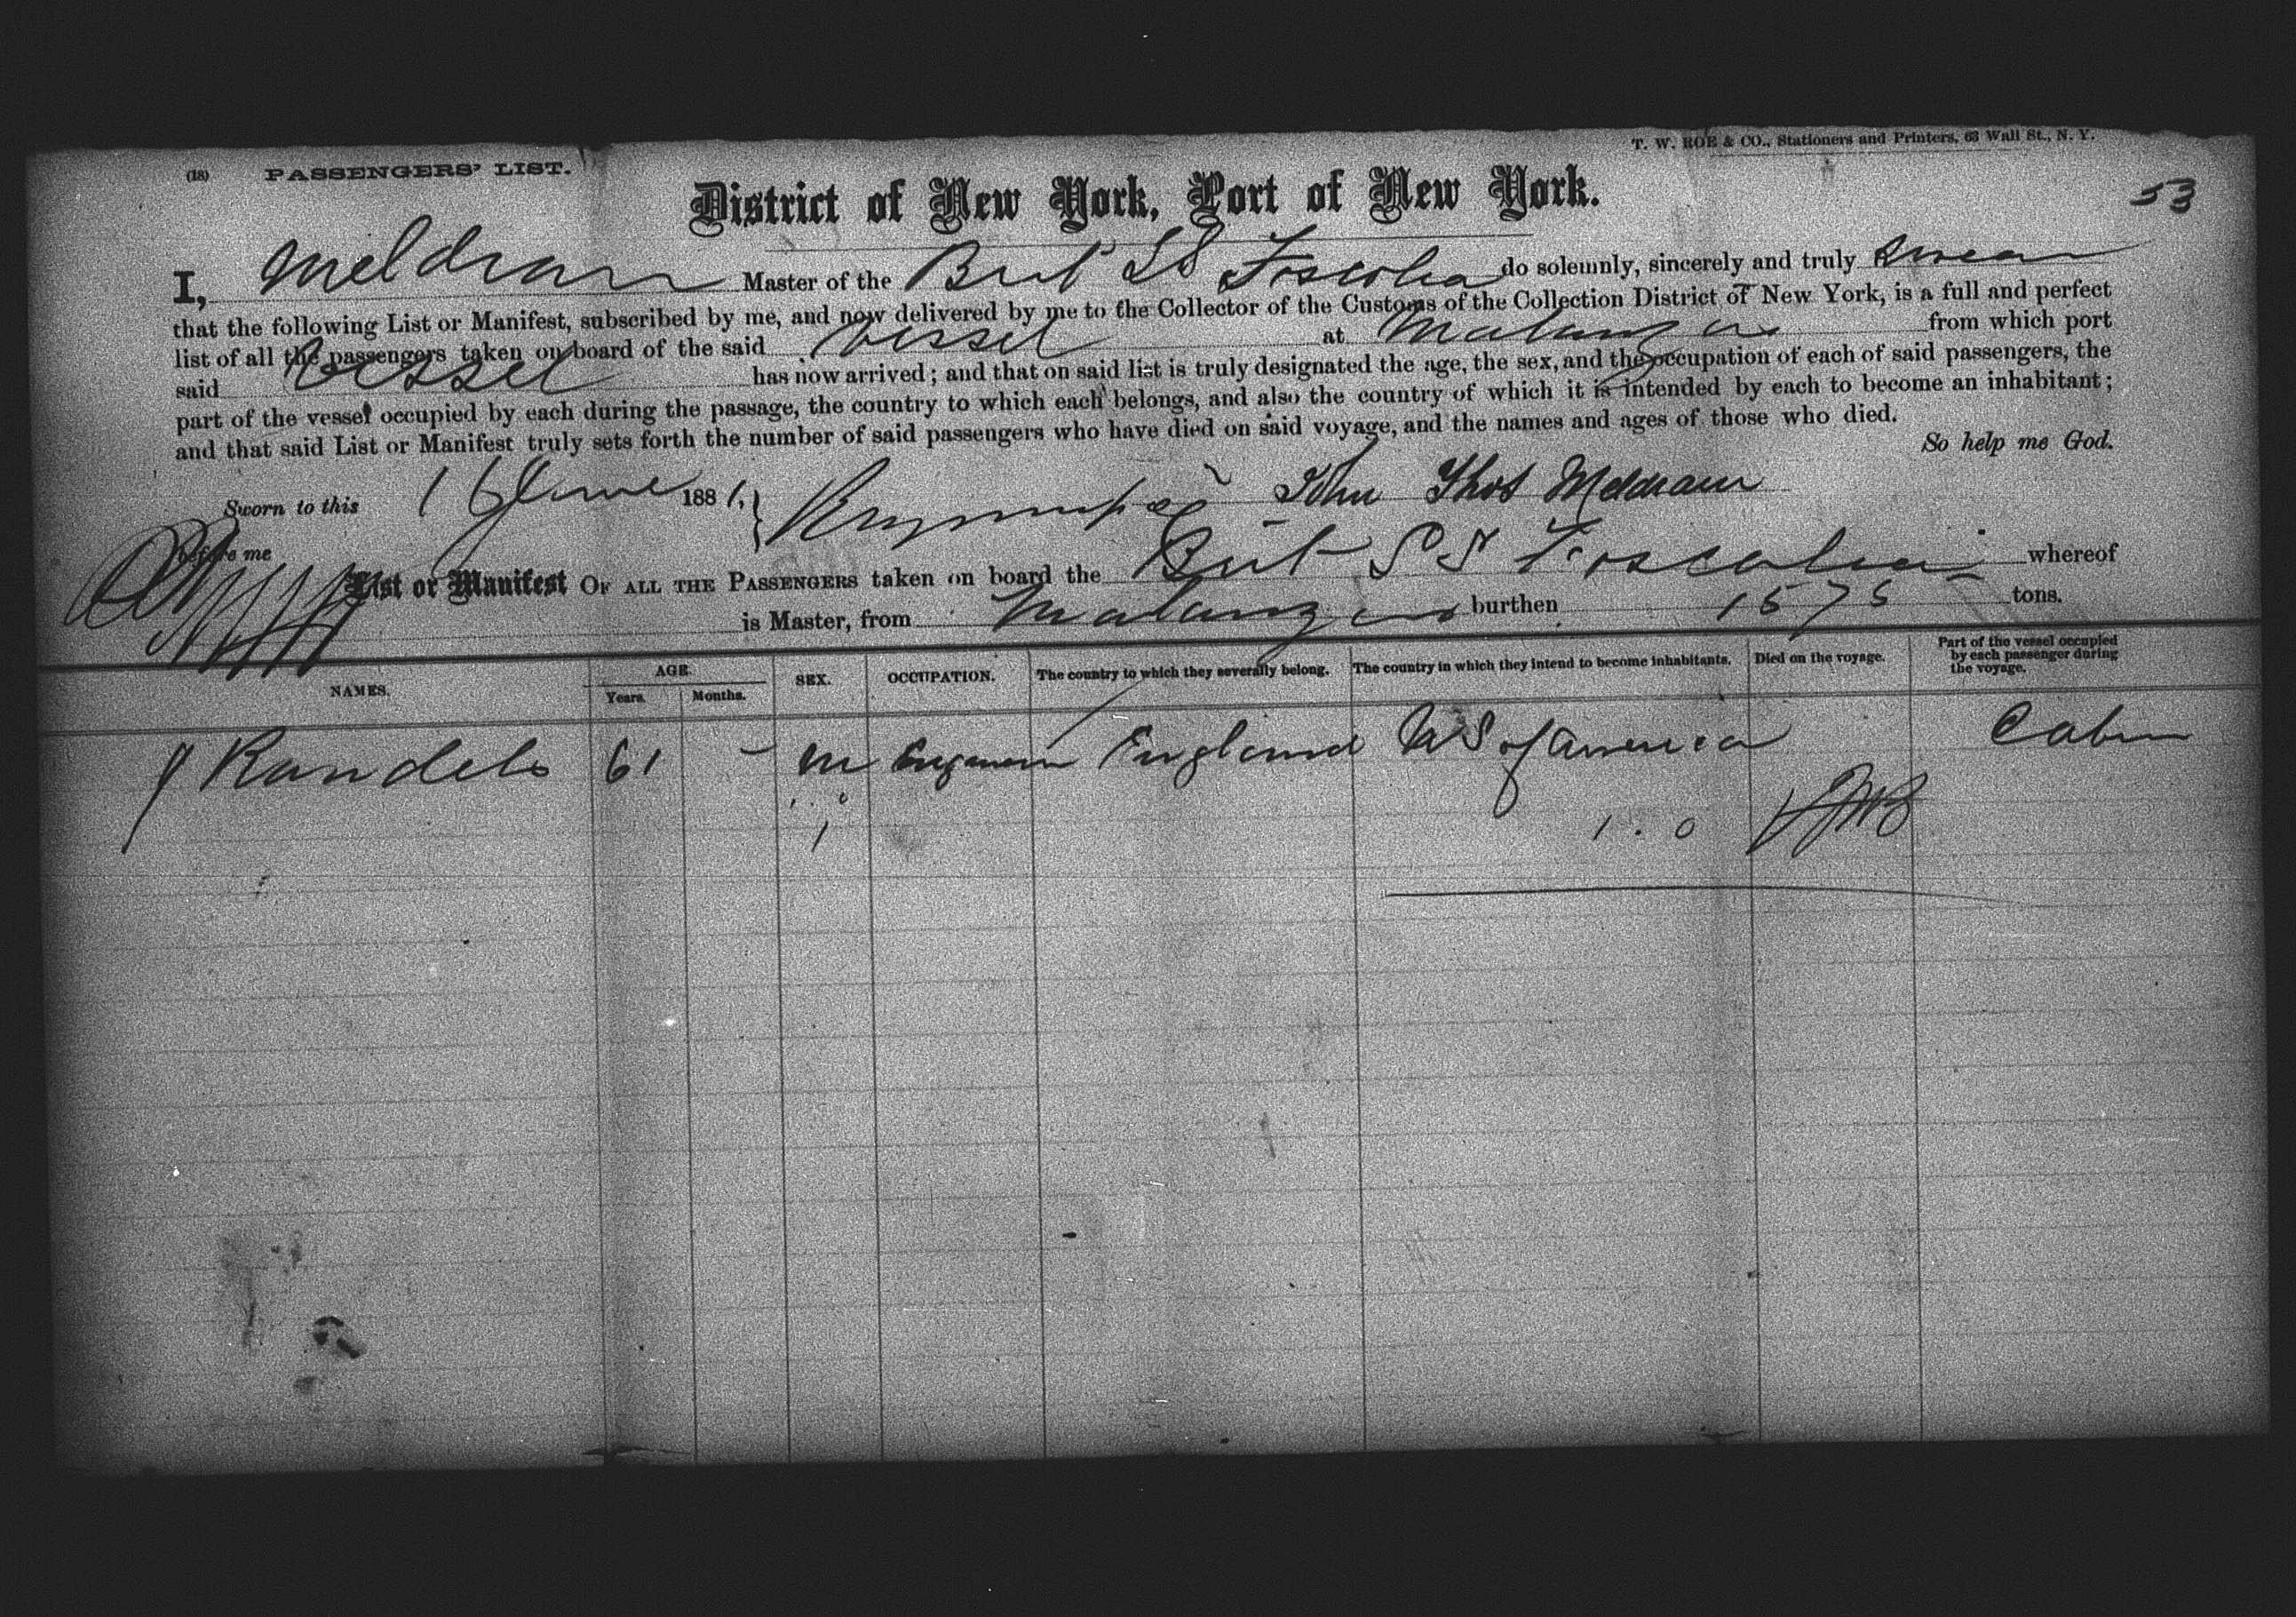 (18) PASSENGERS' LIST.
T. W. ROE & CO., Stationers and Printers, 63 Wall St., N. Y.
53
District of New York, Port of New York.
I, Meldram Master of the Brit SS Foscolia do solemnly, sincerely and truly swear
that the following List or Manifest, subscribed by me, and now delivered by me to the Collector of the Customs of the Collection District of New York, is a full and perfect
list of all the passengers taken on board of the said vessel at Matanzas from which port
said vessel has now arrived; and that on said list is truly designated the age, the sex, and the occupation of each of said passengers, the
part of the vessel occupied by each during the passage, the country to which each belongs, and also the country of which it is intended by each to become an inhabitant;
and that said List or Manifest truly sets forth the number of said passengers who have died on said voyage, and the names and ages of those who died.
So help me God.
Sworn to this 16 June 1881. John Thos Meldram
before me
List or Manifest OF ALL THE PASSENGERS taken on board the Brit SS Foscolia whereof
is Master, from Matanzas burthen 1575 tons.
NAMES. AGE. Years. Months. SEX. OCCUPATION. The country to which they severally belong. The country in which they intend to become inhabitants. Died on the voyage. Part of the vessel occupied by each passenger during the voyage.
J Randels 61 - M Engineer England US of America Cabin
1 1 . 0